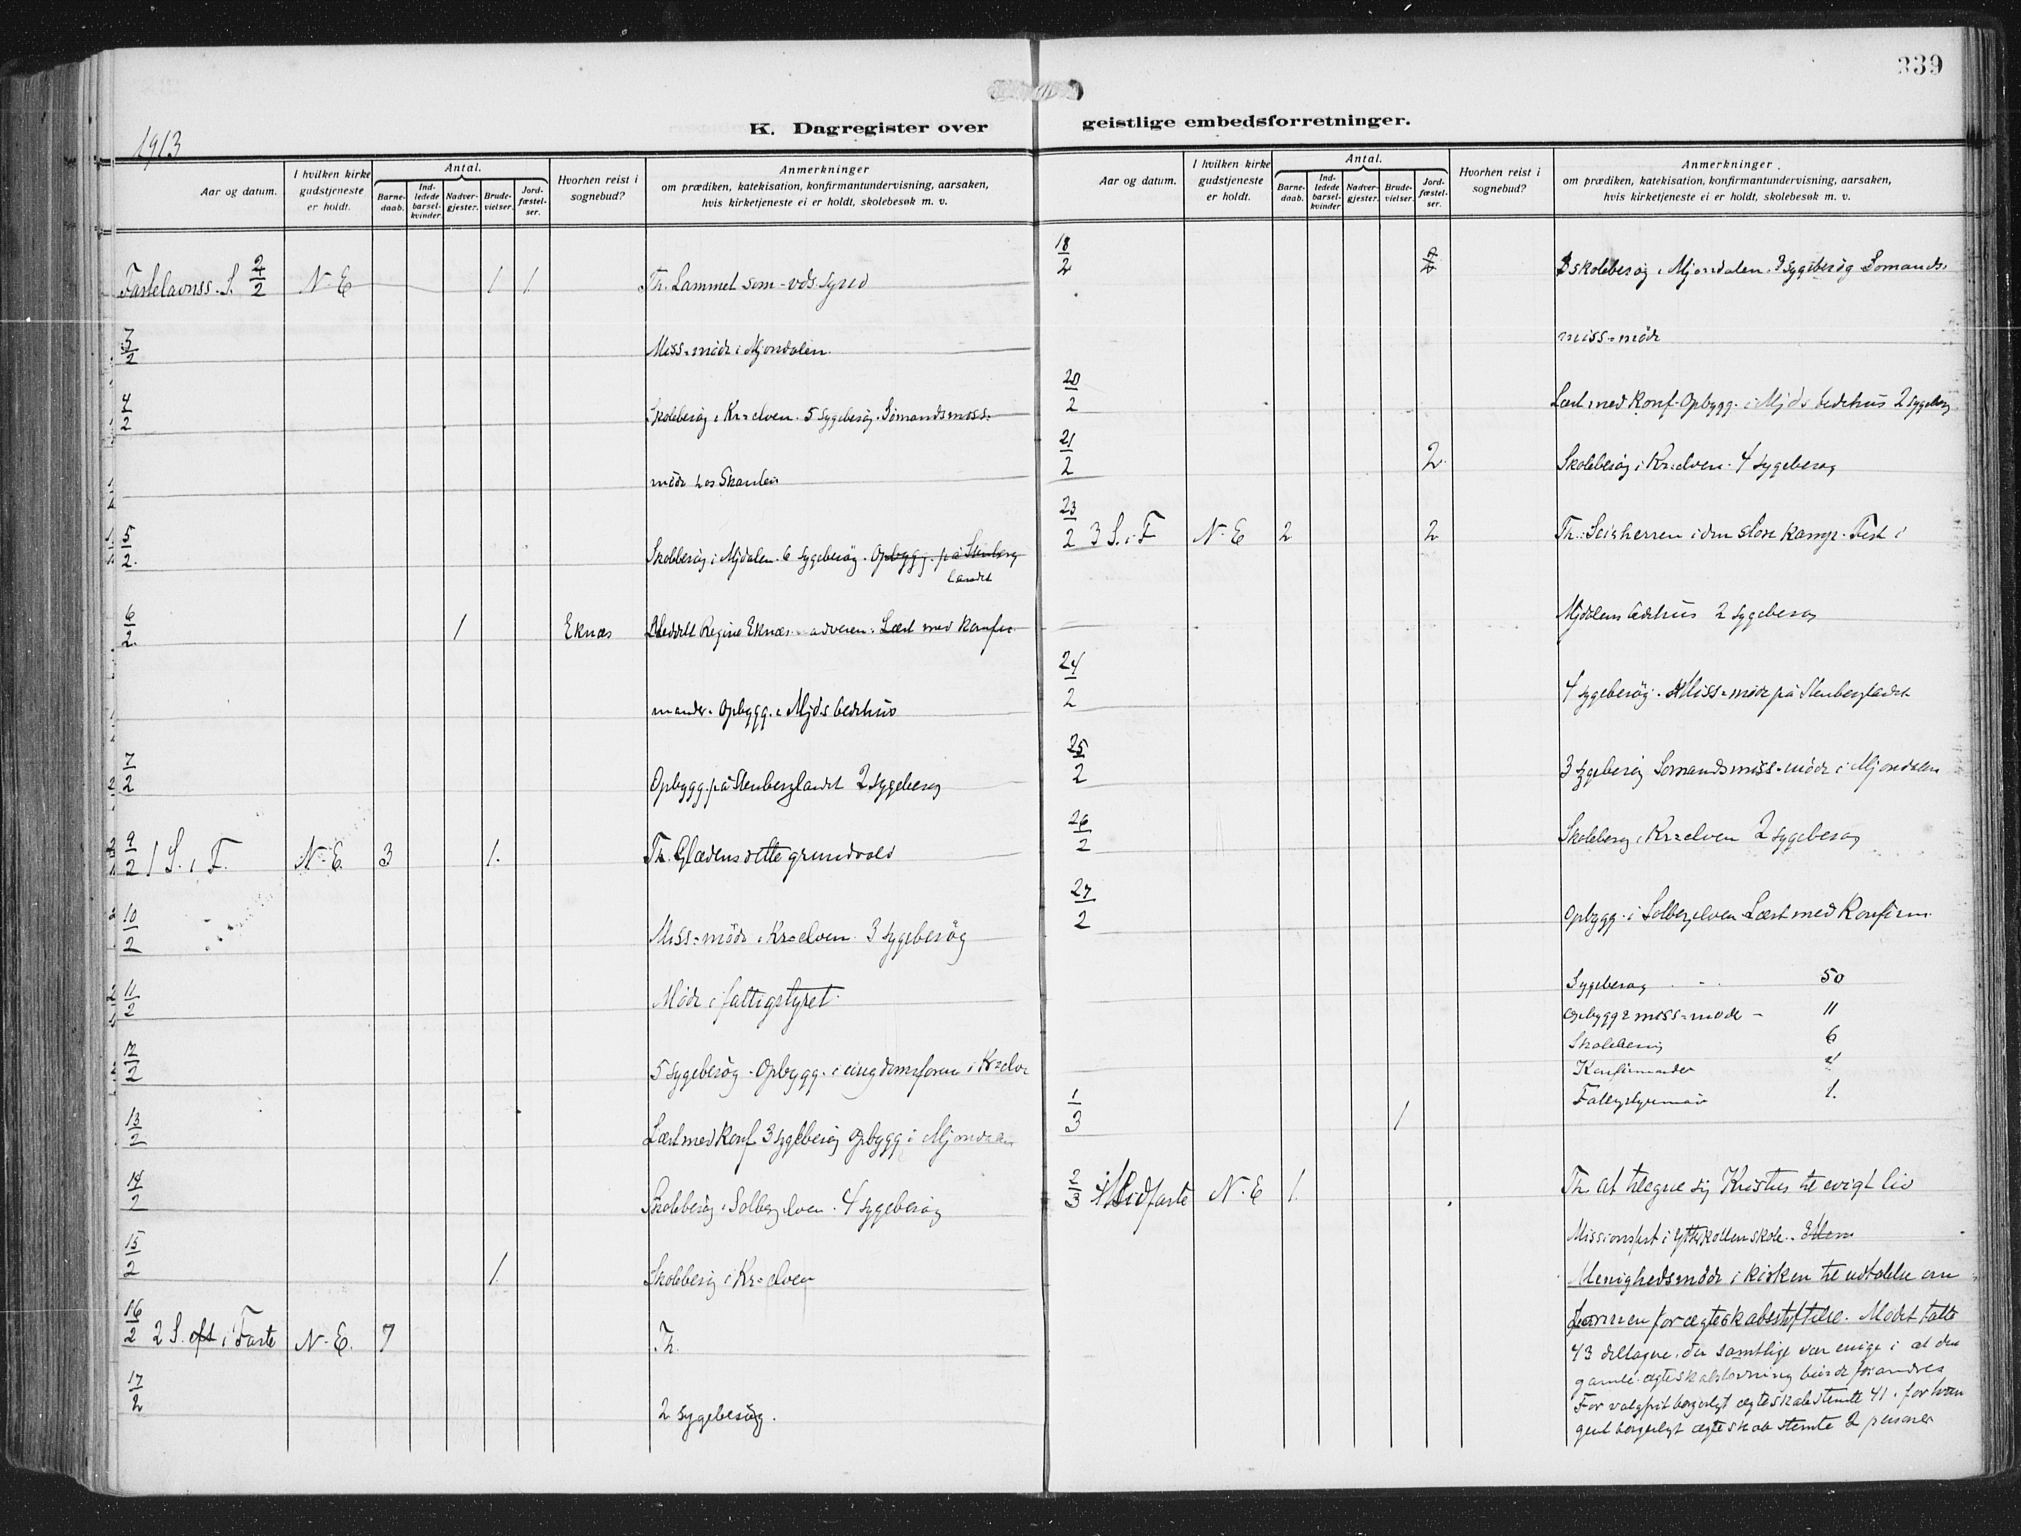 339
K. Dagregister over geistlige embedsforretninger.
1913
Aar og datum.
I hvilken kirke gudstjeneste er holdt.
Antal.
Barne-daab.
Ind-ledede barsel-kvinder
Nadver-gjester.
Brude-vielser.
Jord-fæstel-ser.
Hvorhen reist i sognebud?
Anmerkninger
om prædiken, katekisation, konfirmantundervisning, aarsaken,
hvis kirketjeneste ei er holdt, skolebesøk m. v.
Fastelavnss. S. 2/2 N-E 1 1 Th. Lammet som - vds. synd
3/2 Miss-møde i Mjøndalen.
4/2 Skolebesøg i Kr-elven. 5 Sygebesøg. Sømandsmiss-
møde hos
5/2. Skolebesøg i Mjdalen. 6 Sygebesøg. Opbygg. på Stenberg
landet
6/2. 1 Eknæs Meddelt Regine Eknæs nadveren. Læst med konfir-
mander. Opbygg. i Mjds bedehus
7/2 Opbygg. på Stenberglandet 2 Sygebesøg
9/2 1 S. i F. N-E. 3 1. Th. Glædens dette grundvold
10/2 Miss-møde i Kr-elven. 3 Sygebesøg
11/2 Møde i fattigstyret.
12/2 5 Sygebesøg - Opbygg. i ungdomsforen i Kr-elve
13/2 Læst med Konf 3 Sygebesøg Opbygg i Mjøndalen
14/2 Skolebesøg i Solbergelven. 4 Sygebesøg
15/2 1. Skolebesøg i Kr-elven
16/2 2 S. i Faste N-E. 7 Th.
17/2 2 Sygebesøg.
Aar og datum.
I hvilken kirke gudstjeneste er holdt.
Antal.
Barne-daab.
Ind-ledede barsel-kvinder
Nadver-gjester.
Brude-vielser.
Jord-fæstel-ser.
Hvorhen reist i sognebud?
Anmerkninger
om prædiken, katekisation, konfirmantundervisning, aarsaken,
hvis kirketjeneste ei er holdt, skolebesøk m. v.
18/2 skolebesøg i Mjøndalen. 3 Sygebesøg Sømands-
miss-møde
20/2 Læst med Konf. Opbygg. i Mjds bedehus 2 Sygebesøg
21/2 2. Skolebesøg i Kr-elven. 4 Sygebesøg
23/2 3 S. i F N-E 2 2 Th. Seisherren i den store kamp. Fest i
Mjdalens bedehus 2 Sygebesøg
24/2 4 Sygebesøg. Miss-møde på Stenberglandet
25/2 3 Sygebesøg Sømandsmiss-møde i Mjøndalen
26/2 Skolebesøg i Kr-elven 2 Sygebesøg
27/2 Opbygg. i Solbergelven Læst med Konfirm.
Sygebesøg . . 50
Opbygg & miss-møde - 11
Skolebesøg 6
Konfirmander 4
Fattigstyremøde 1.
1/3 1
2/3 Midfaste N-E 1. Th. at tilegne sig Kristus til evigt liv
Missionsfest i Ytterkollen skole.
Menighedsmøde i kirken til udtalelse om
formen for ægteskabsstiftelse. Mødet talte
43 deltagere, der samtlige var enige i at den
gamle ægteskabslovning burde forandres
For valgfrit borgerligt ægteskab stemte 41. for tvun
gent borgerligt ægteskab stemte 2 personer